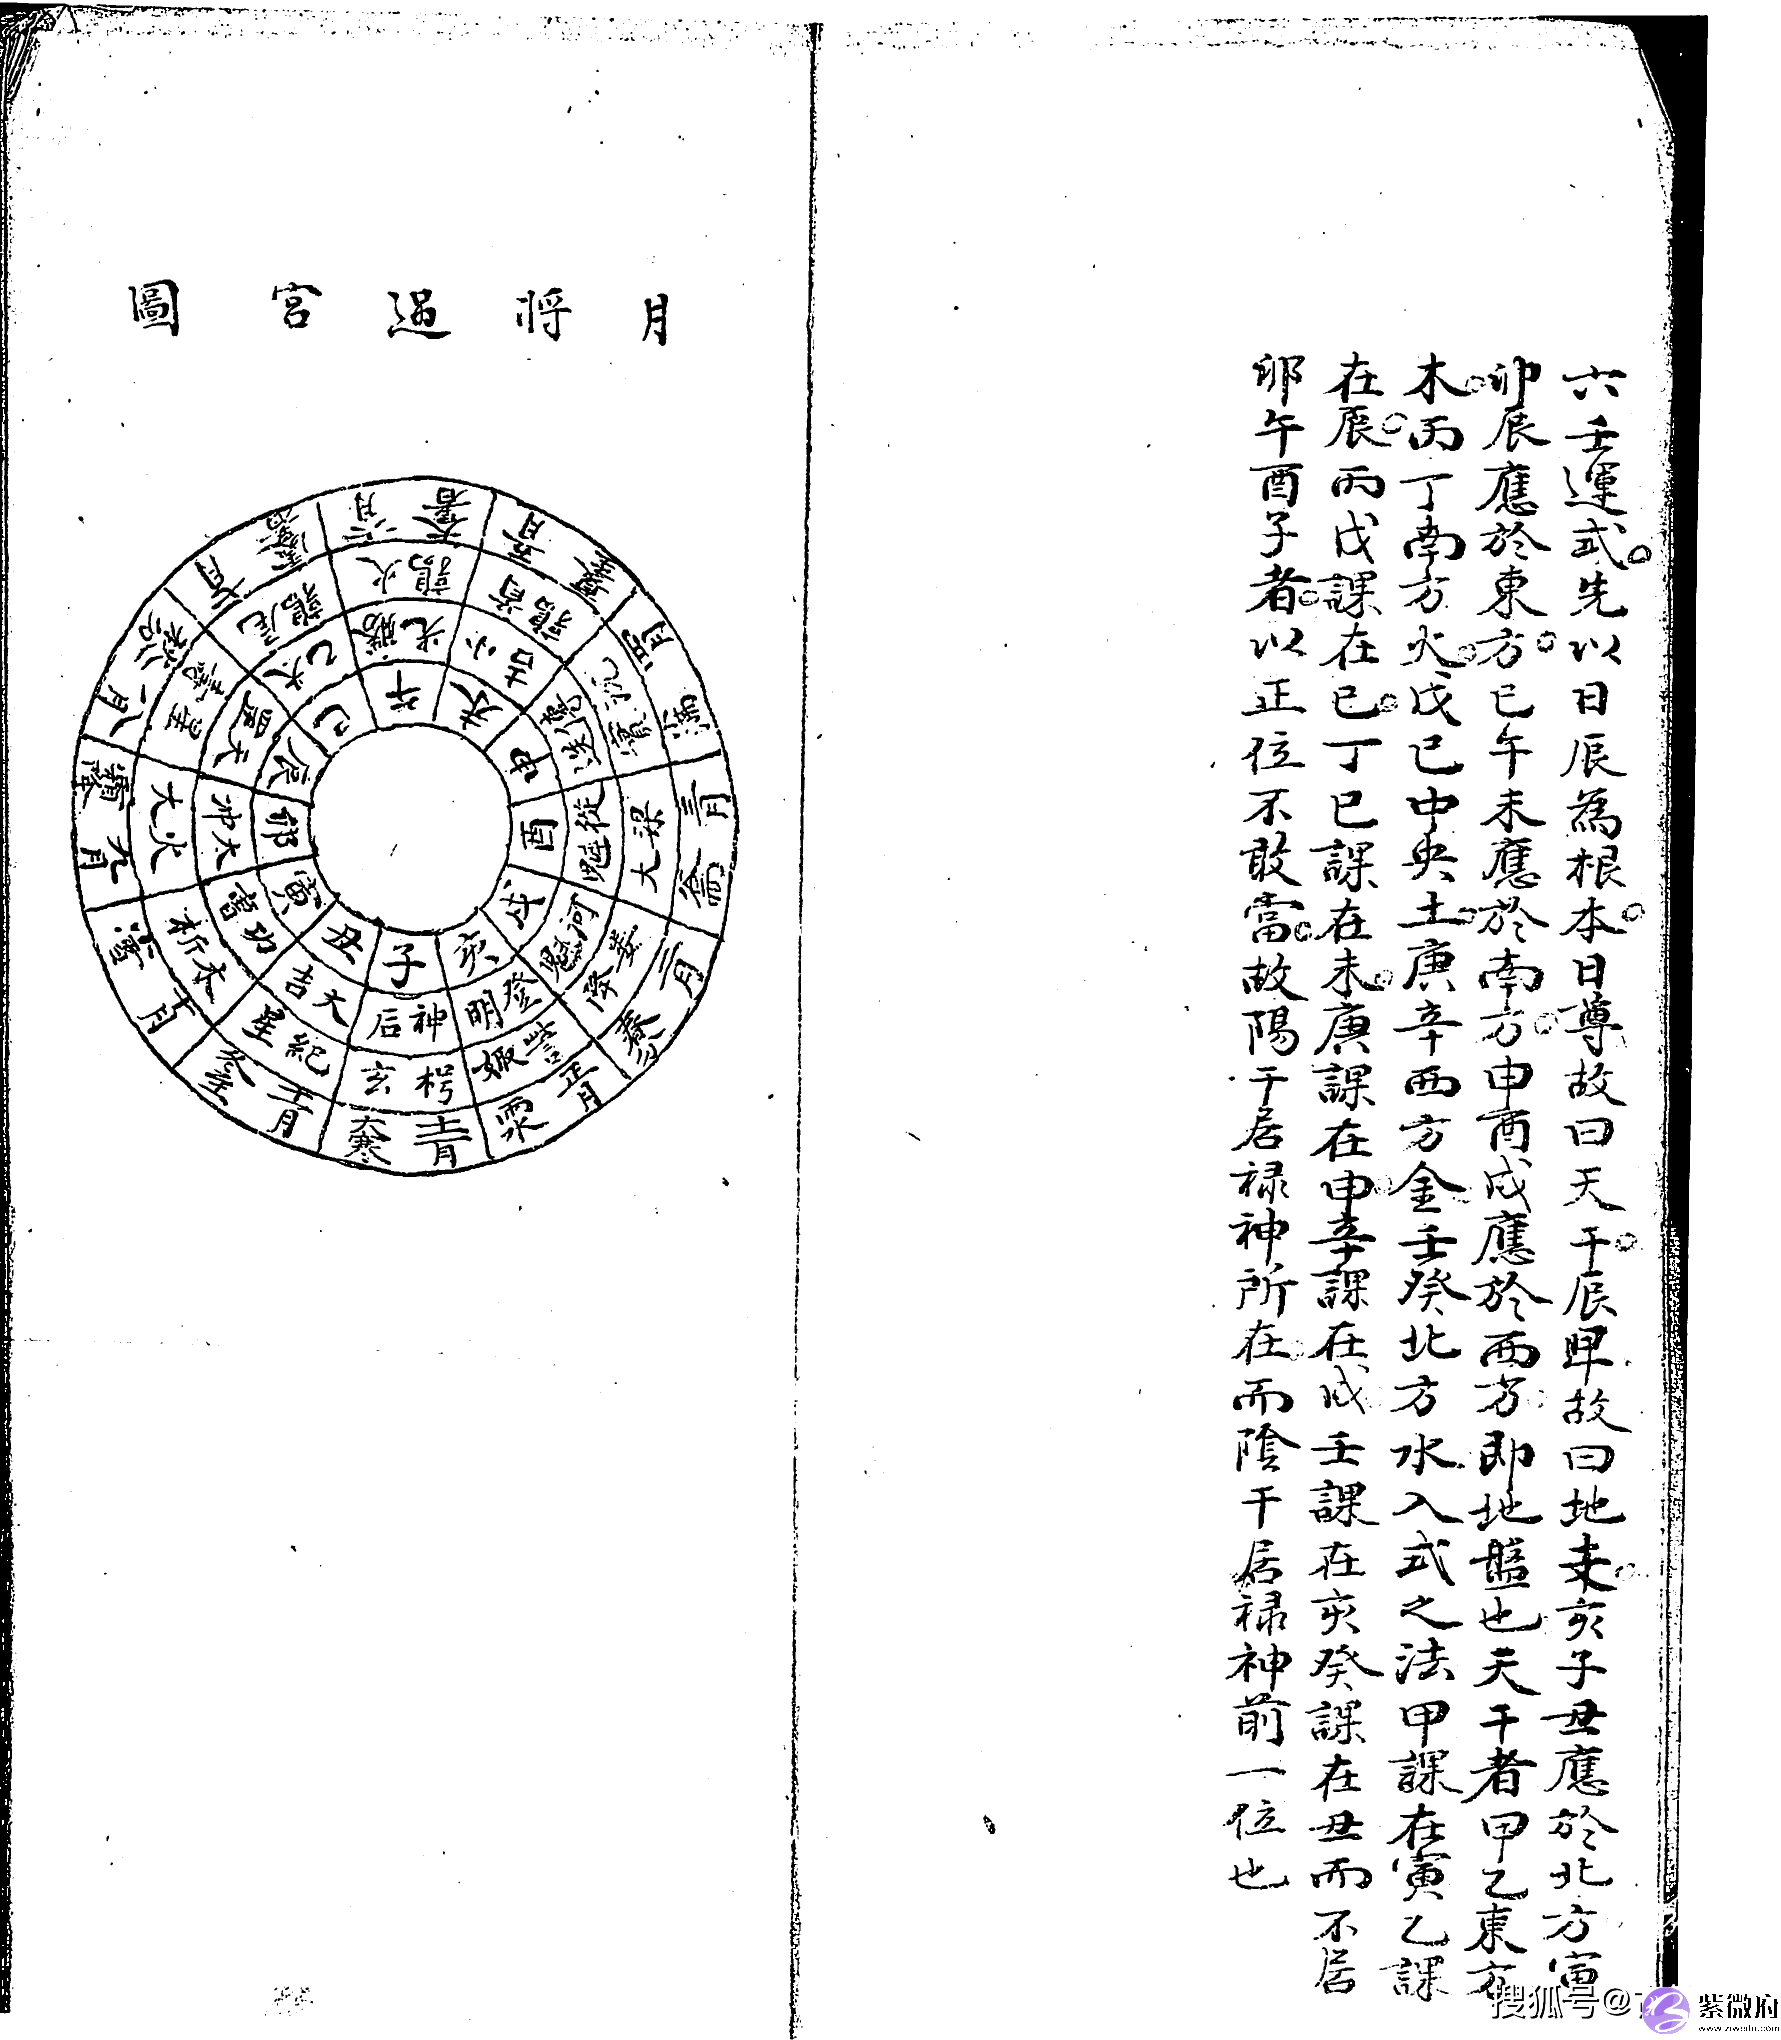 六壬運式先以日辰為根本日尊故曰天干辰卑故曰地支亥子丑應於北方寅
卯辰應於東方巳午未應於南方申酉戌應於西方即地盤也天干者甲乙東方
木丙丁南方火戊己中央土庚辛西方金壬癸北方水入式之法甲課在寅乙課
在辰丙戊課在巳丁己課在未庚課在申辛課在戌壬課在亥癸課在丑而不居
卯午酉子者以正位不敢當故陽干居祿神所在而陰干居祿神前一位也
月將過宮圖
六月 大暑
鶉火
勝光
午
五月 夏至
鶉首
小吉
未
四月 小滿
實沈
傳送
申
三月 穀雨
大梁
從魁
酉
二月 春分
降婁
河魁
戌
正月 雨水
娵訾
登明
亥
十二月 大寒
玄枵
神后
子
十一月 冬至
星紀
大吉
丑
十月 小雪
析木
功曹
寅
九月 霜降
大火
太冲
卯
八月 秋分
壽星
天罡
辰
七月 處暑
鶉尾
太乙
巳
搜狐号@
紫微府
www.ziweifu.com